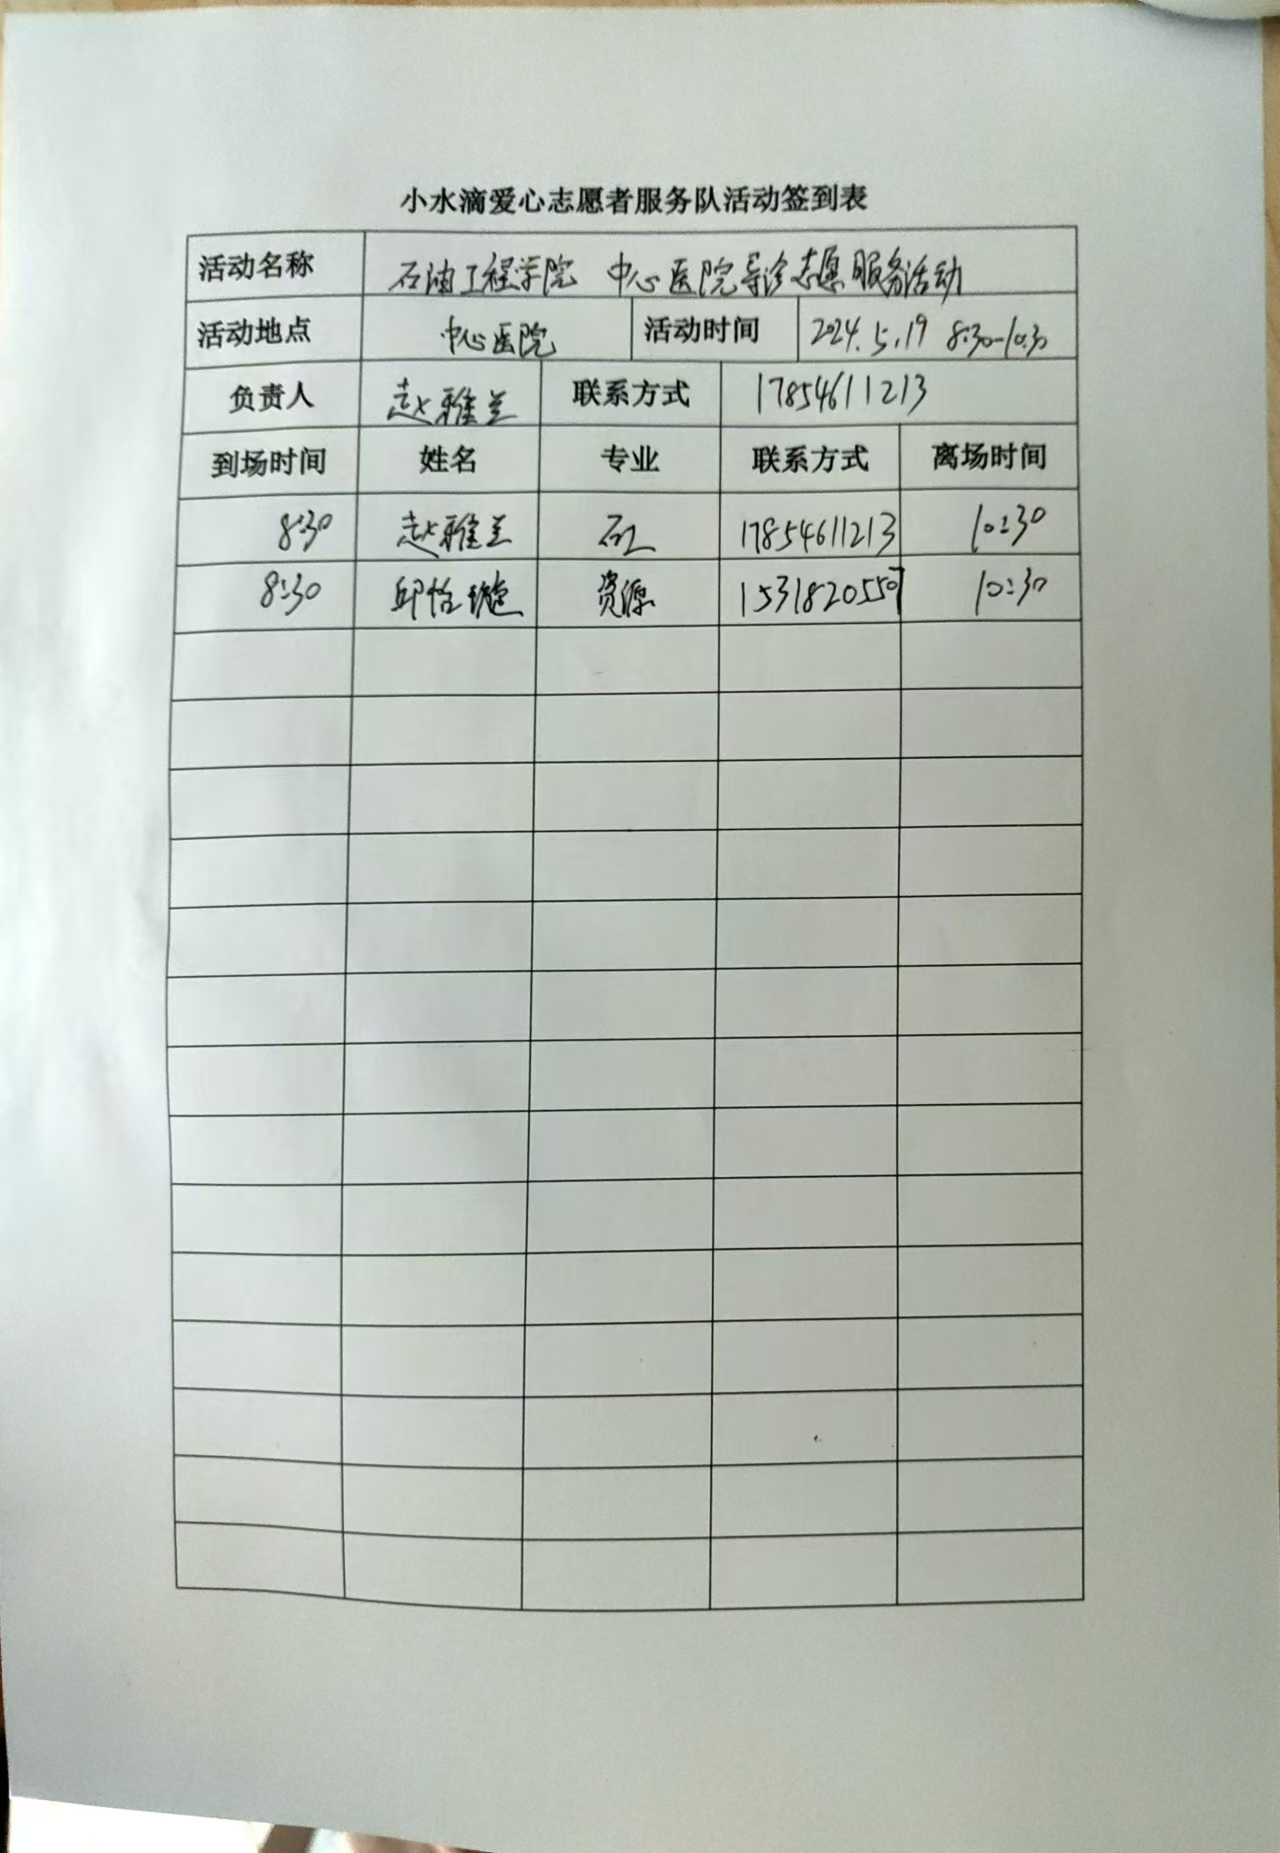 小水滴爱心志愿者服务队活动签到表
活动名称 石油工程学院 中心医院导诊志愿服务活动
活动地点 中心医院 活动时间 2024.5.19 8:30-10:30
负责人 赵雅兰 联系方式 17854611213
到场时间 姓名 专业 联系方式 离场时间
8:30 赵雅兰 石工 17854611213 10:30
8:30 邱怡璇 资源 15318205507 10:30